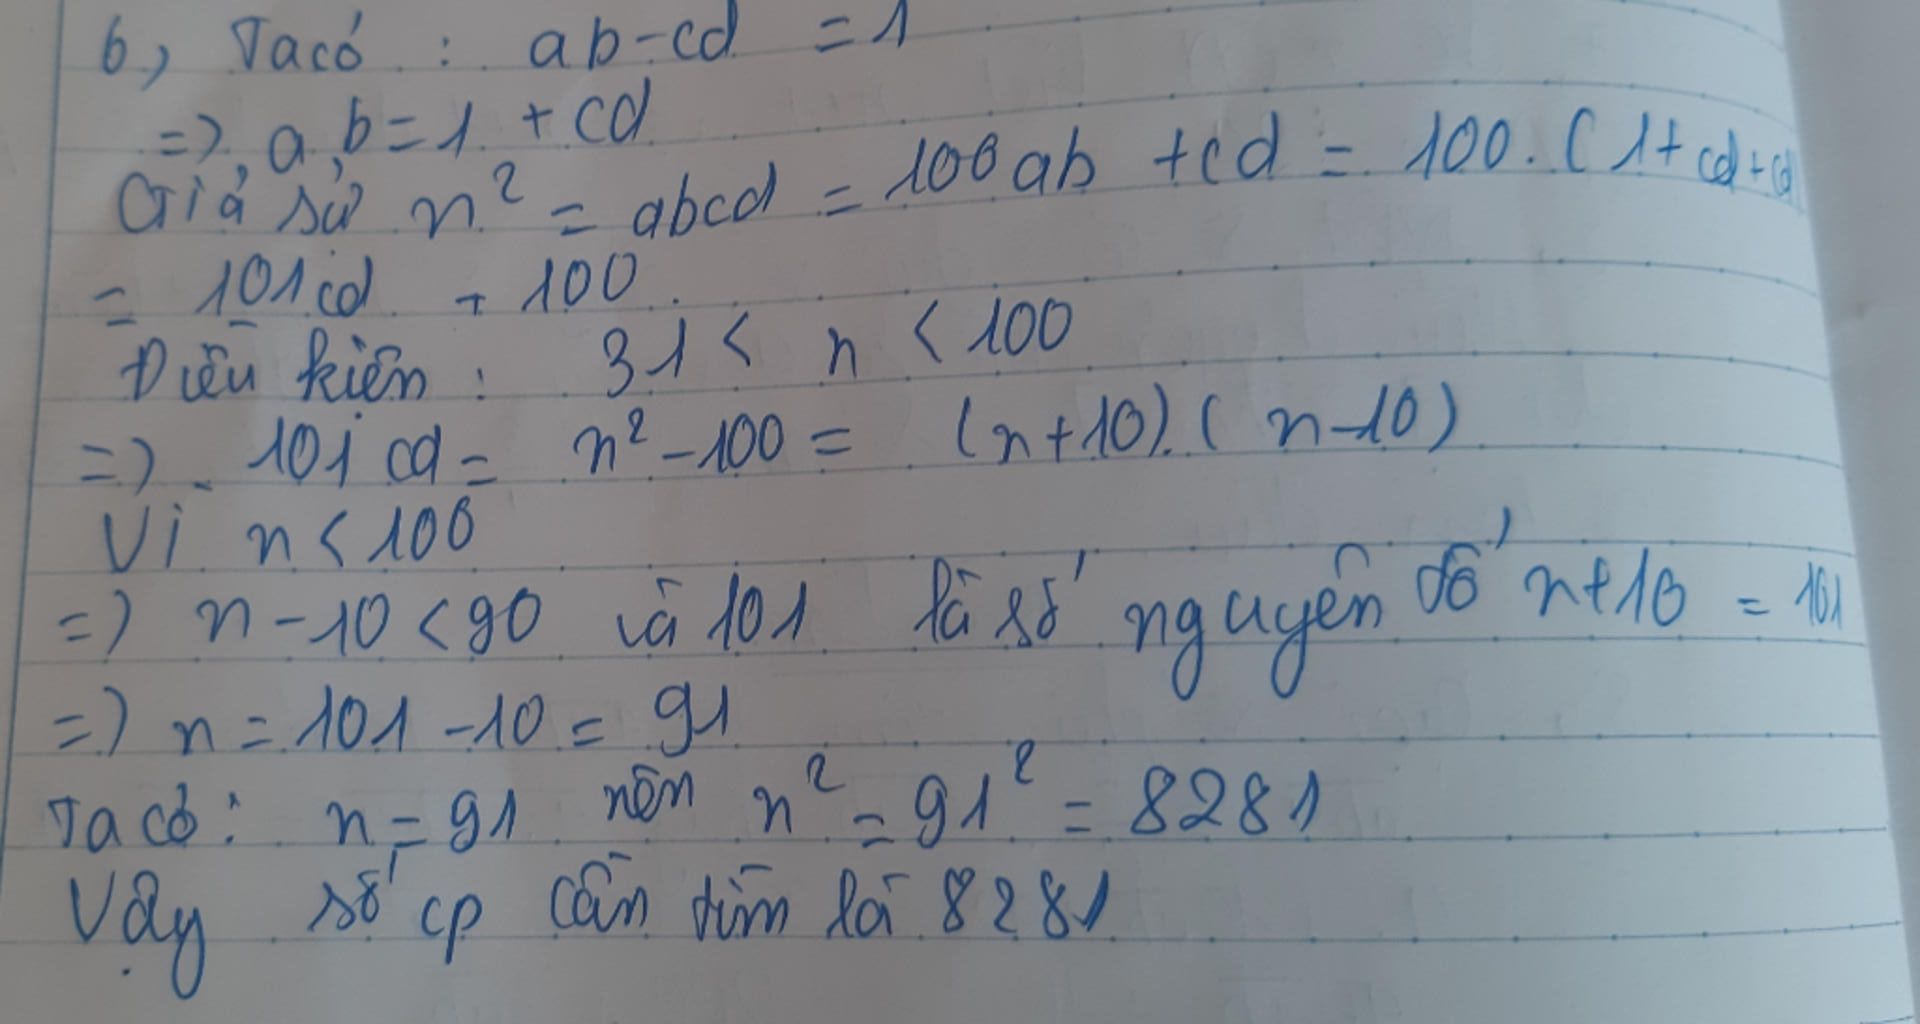 6, Ta có : ab-cd = 1
=> ab = 1 + cd
Giả sử n² = abcd = 100ab + cd = 100.(1+cd+cd
= 101cd + 100
Điều kiện : 31 < n < 100
=> 101cd = n² - 100 = (n+10).(n-10)
Vì n < 100
=> n - 10 < 90 và 101 là số nguyên tố n+10 = 101
=> n = 101 - 10 = 91
Ta có : n = 91 nên n² = 91² = 8281
Vậy số cp cần tìm là 8281